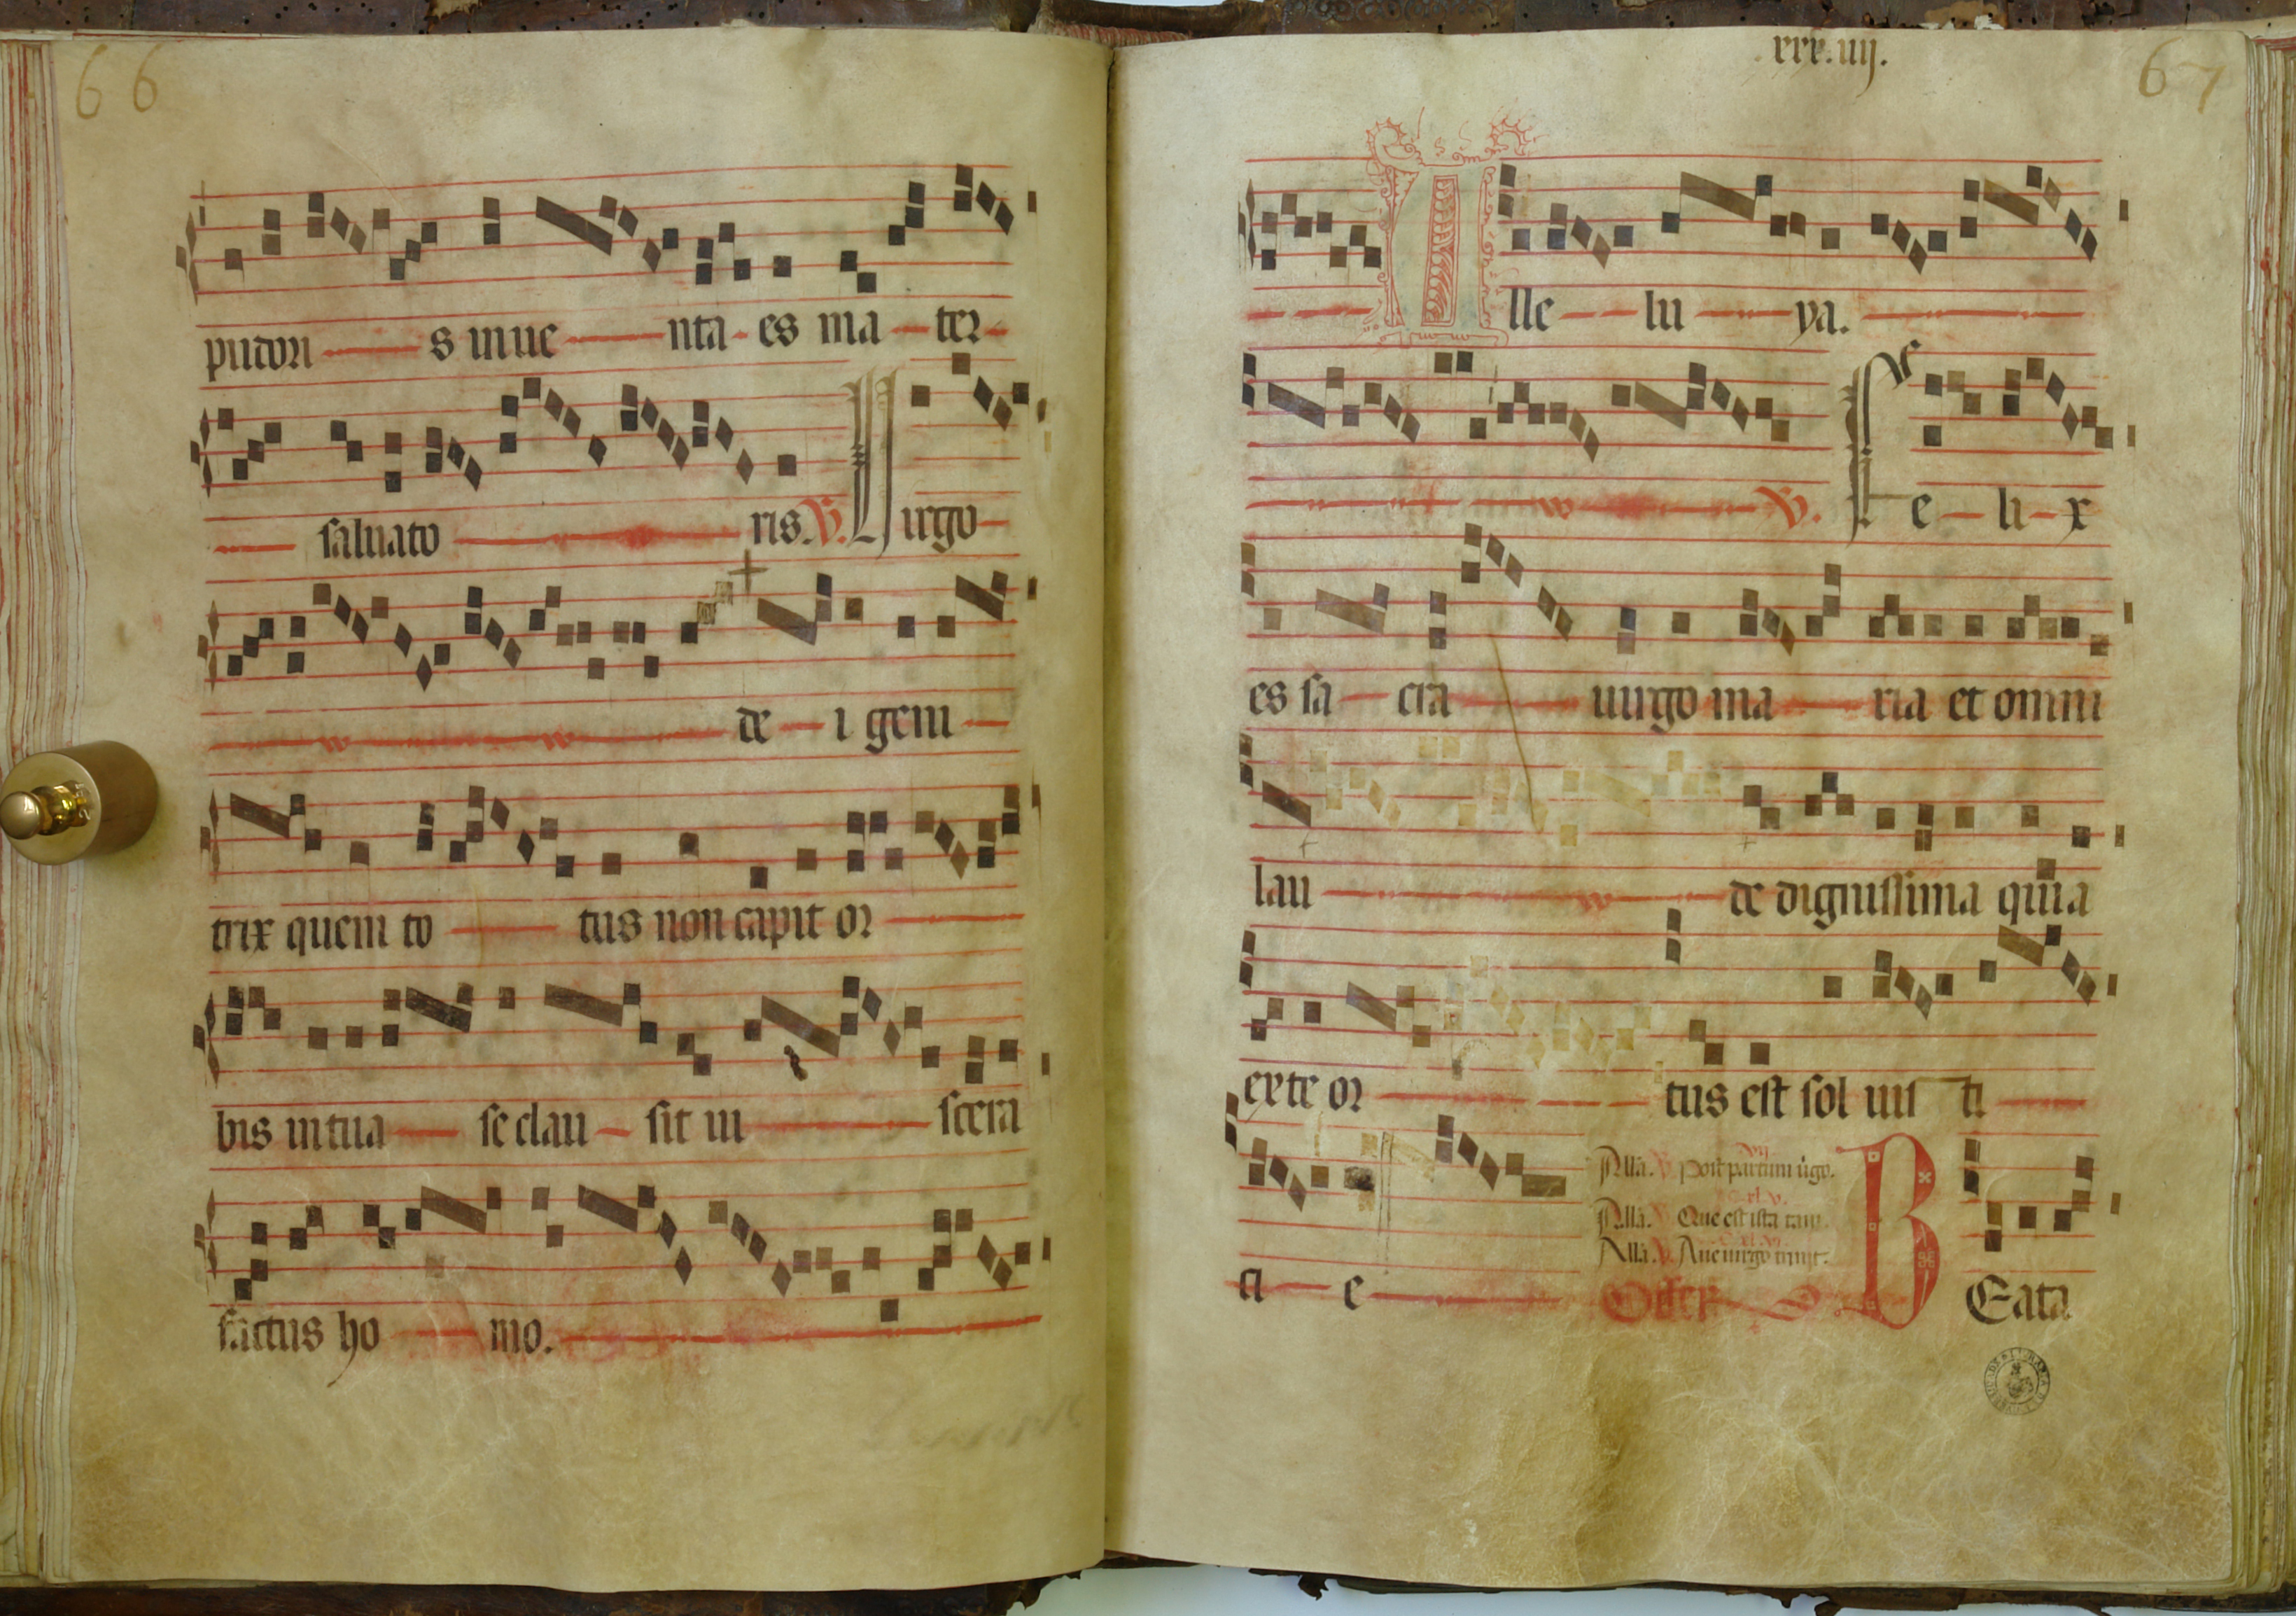 66
pudori s inue nta es ma ter
saluato ris. V. Uirgo
de i geni
trix quem to tus non capit or
bis in tua se clau sit ui scera
factus ho mo.
xxx.iiij.
67
Alle lu ya.
V. Fe li x
es sa cra uirgo ma ria et omni
lau de dignissima quia
ex te or tus est sol iusti
ti e
Alla. V. Post partum uigo.
Alla. V. Que est ista
Alla. V. Aue uirgo
Offer
BEata